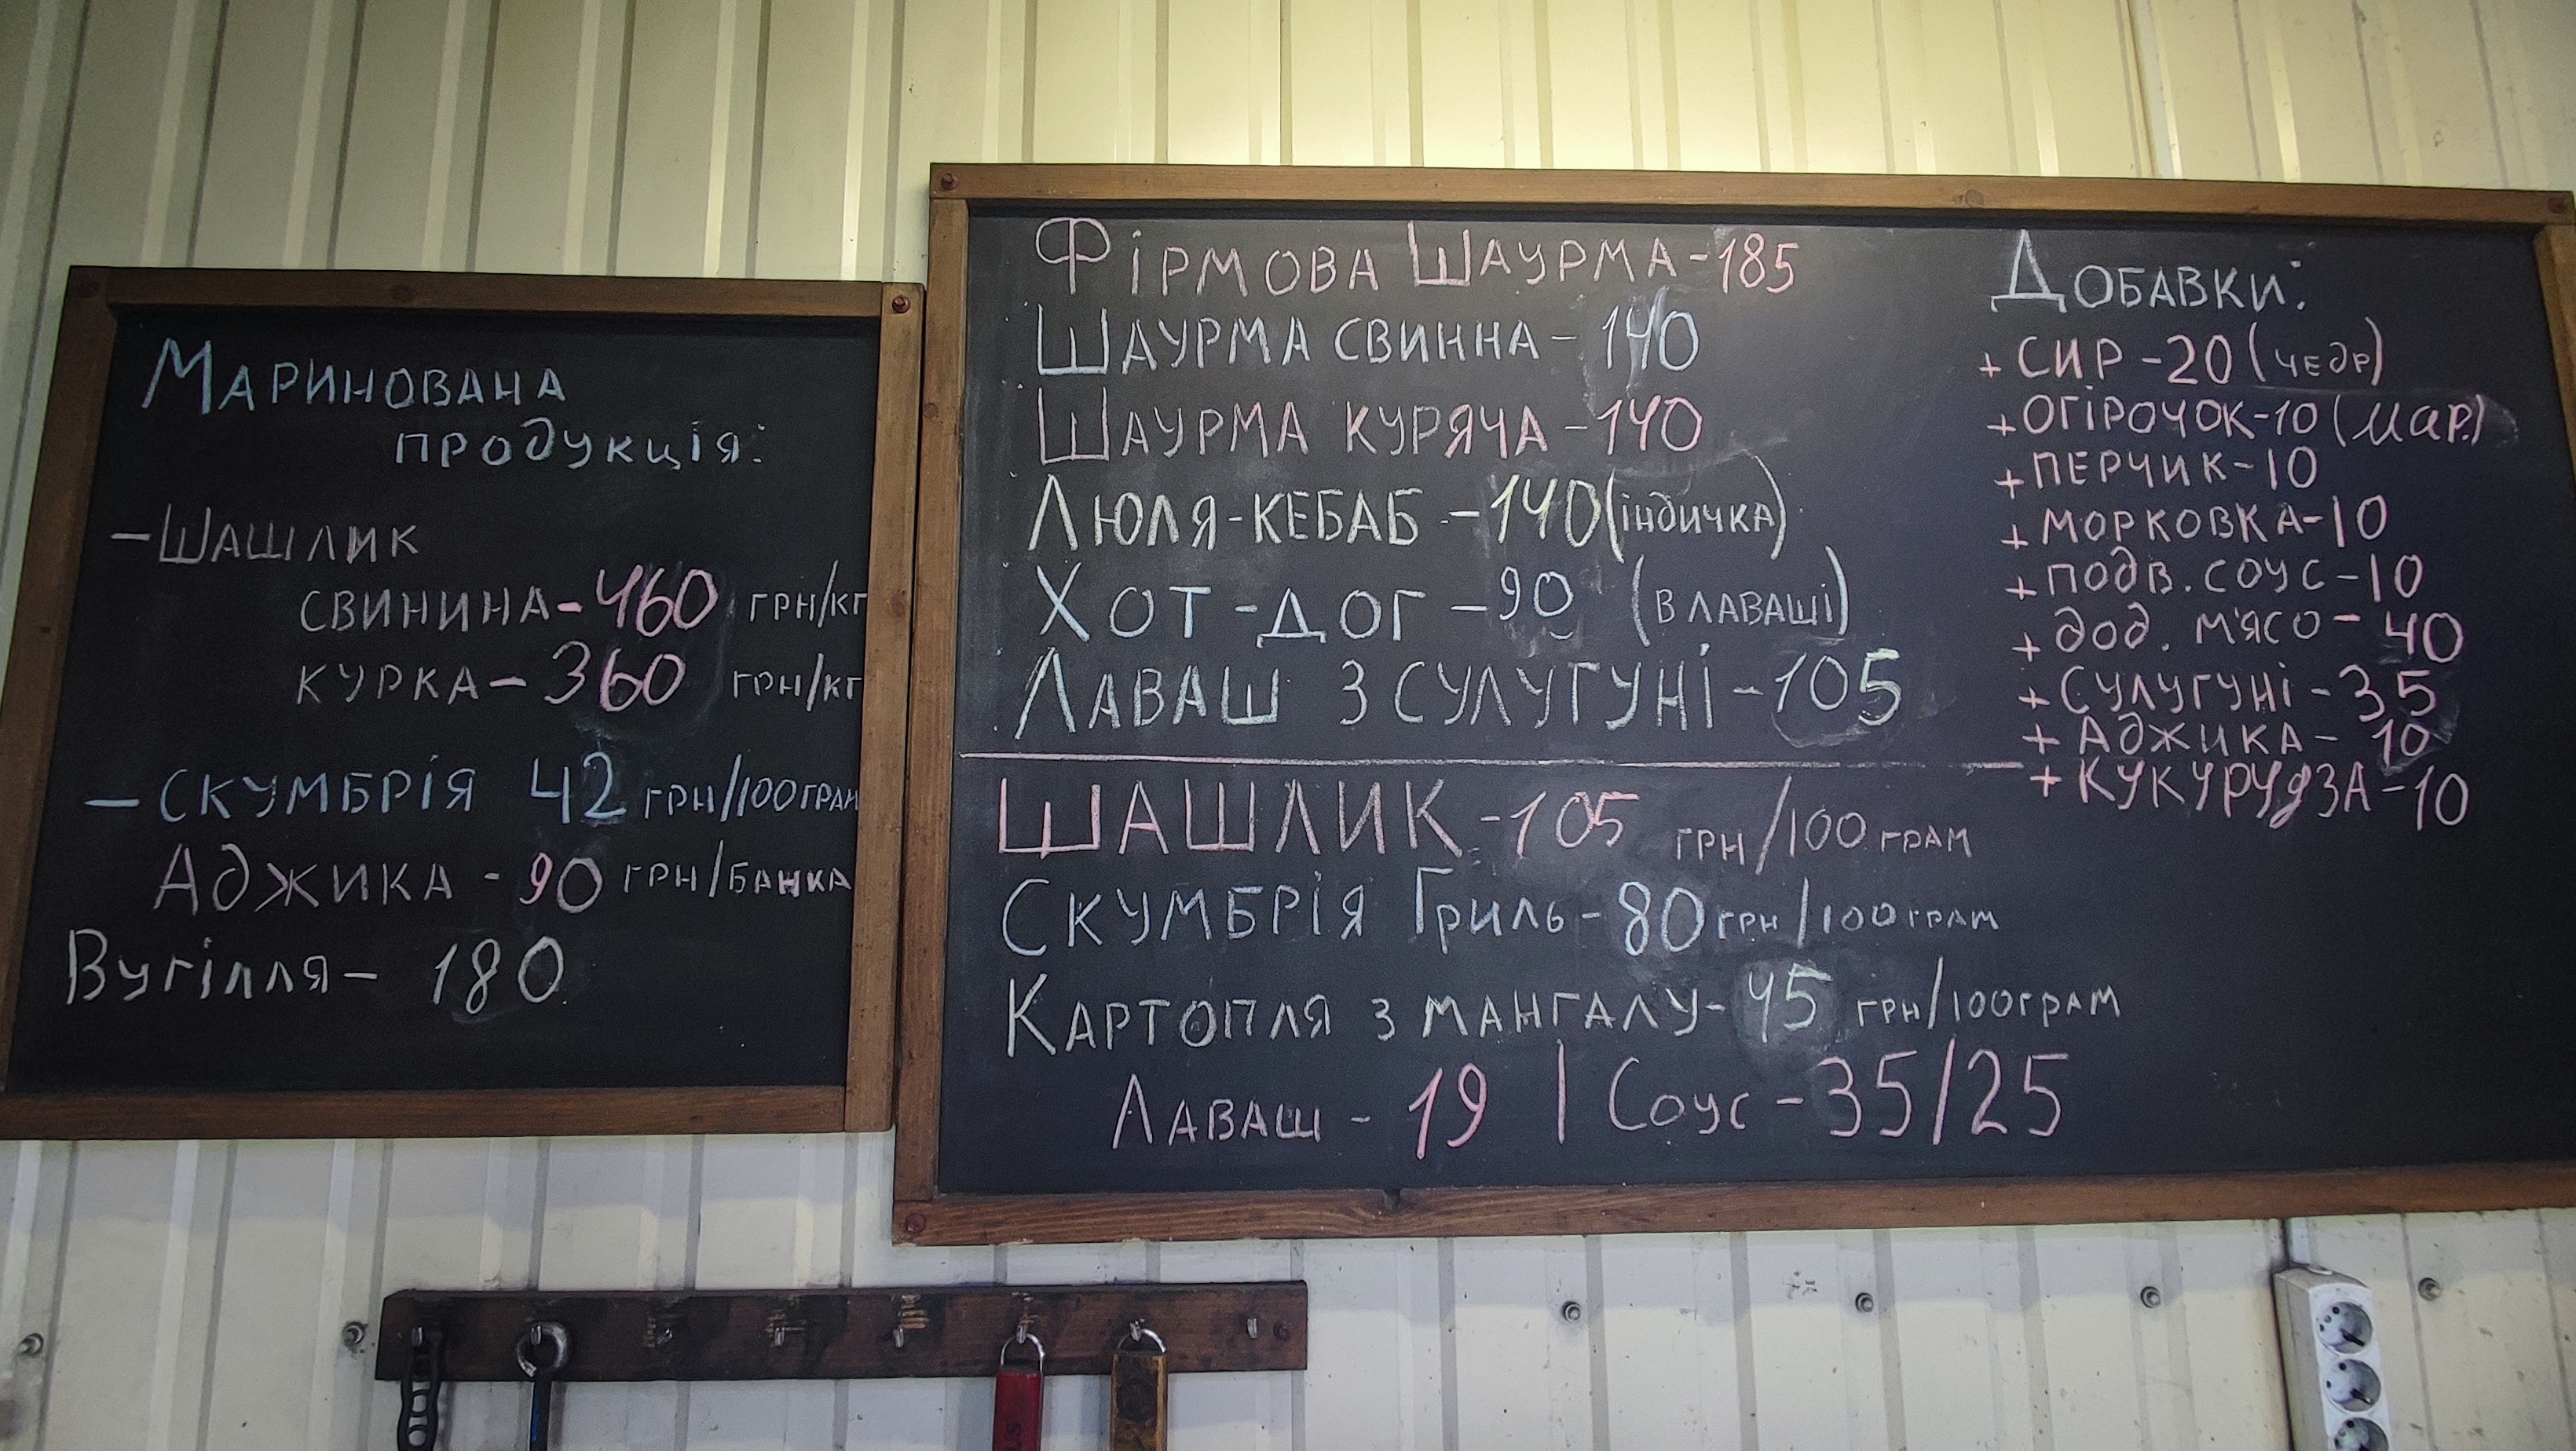 Маринована
продукція:
- Шашлик
свинина - 460 грн/кг
курка - 360 грн/кг
- Скумбрія 42 грн/100грам
Аджика - 90 грн/банка
Вугілля - 180
Фірмова Шаурма - 185
Шаурма свинна - 140
Шаурма куряча - 140
Люля-кебаб - 140 (індичка)
Хот-дог - 90 (в лаваші)
Лаваш з сулугуні - 105
Шашлик - 105 грн/100 грам
Скумбрія Гриль - 80 грн/100грам
Картопля з мангалу - 45 грн/100грам
Лаваш - 19 | Соус - 35/25
Добавки:
+ сир - 20 (чедр)
+ огірочок - 10 (мар.)
+ перчик - 10
+ морковка - 10
+ подв. соус - 10
+ дод. м'ясо - 40
+ Сулугуні - 35
+ Аджика - 10
+ кукурудза - 10